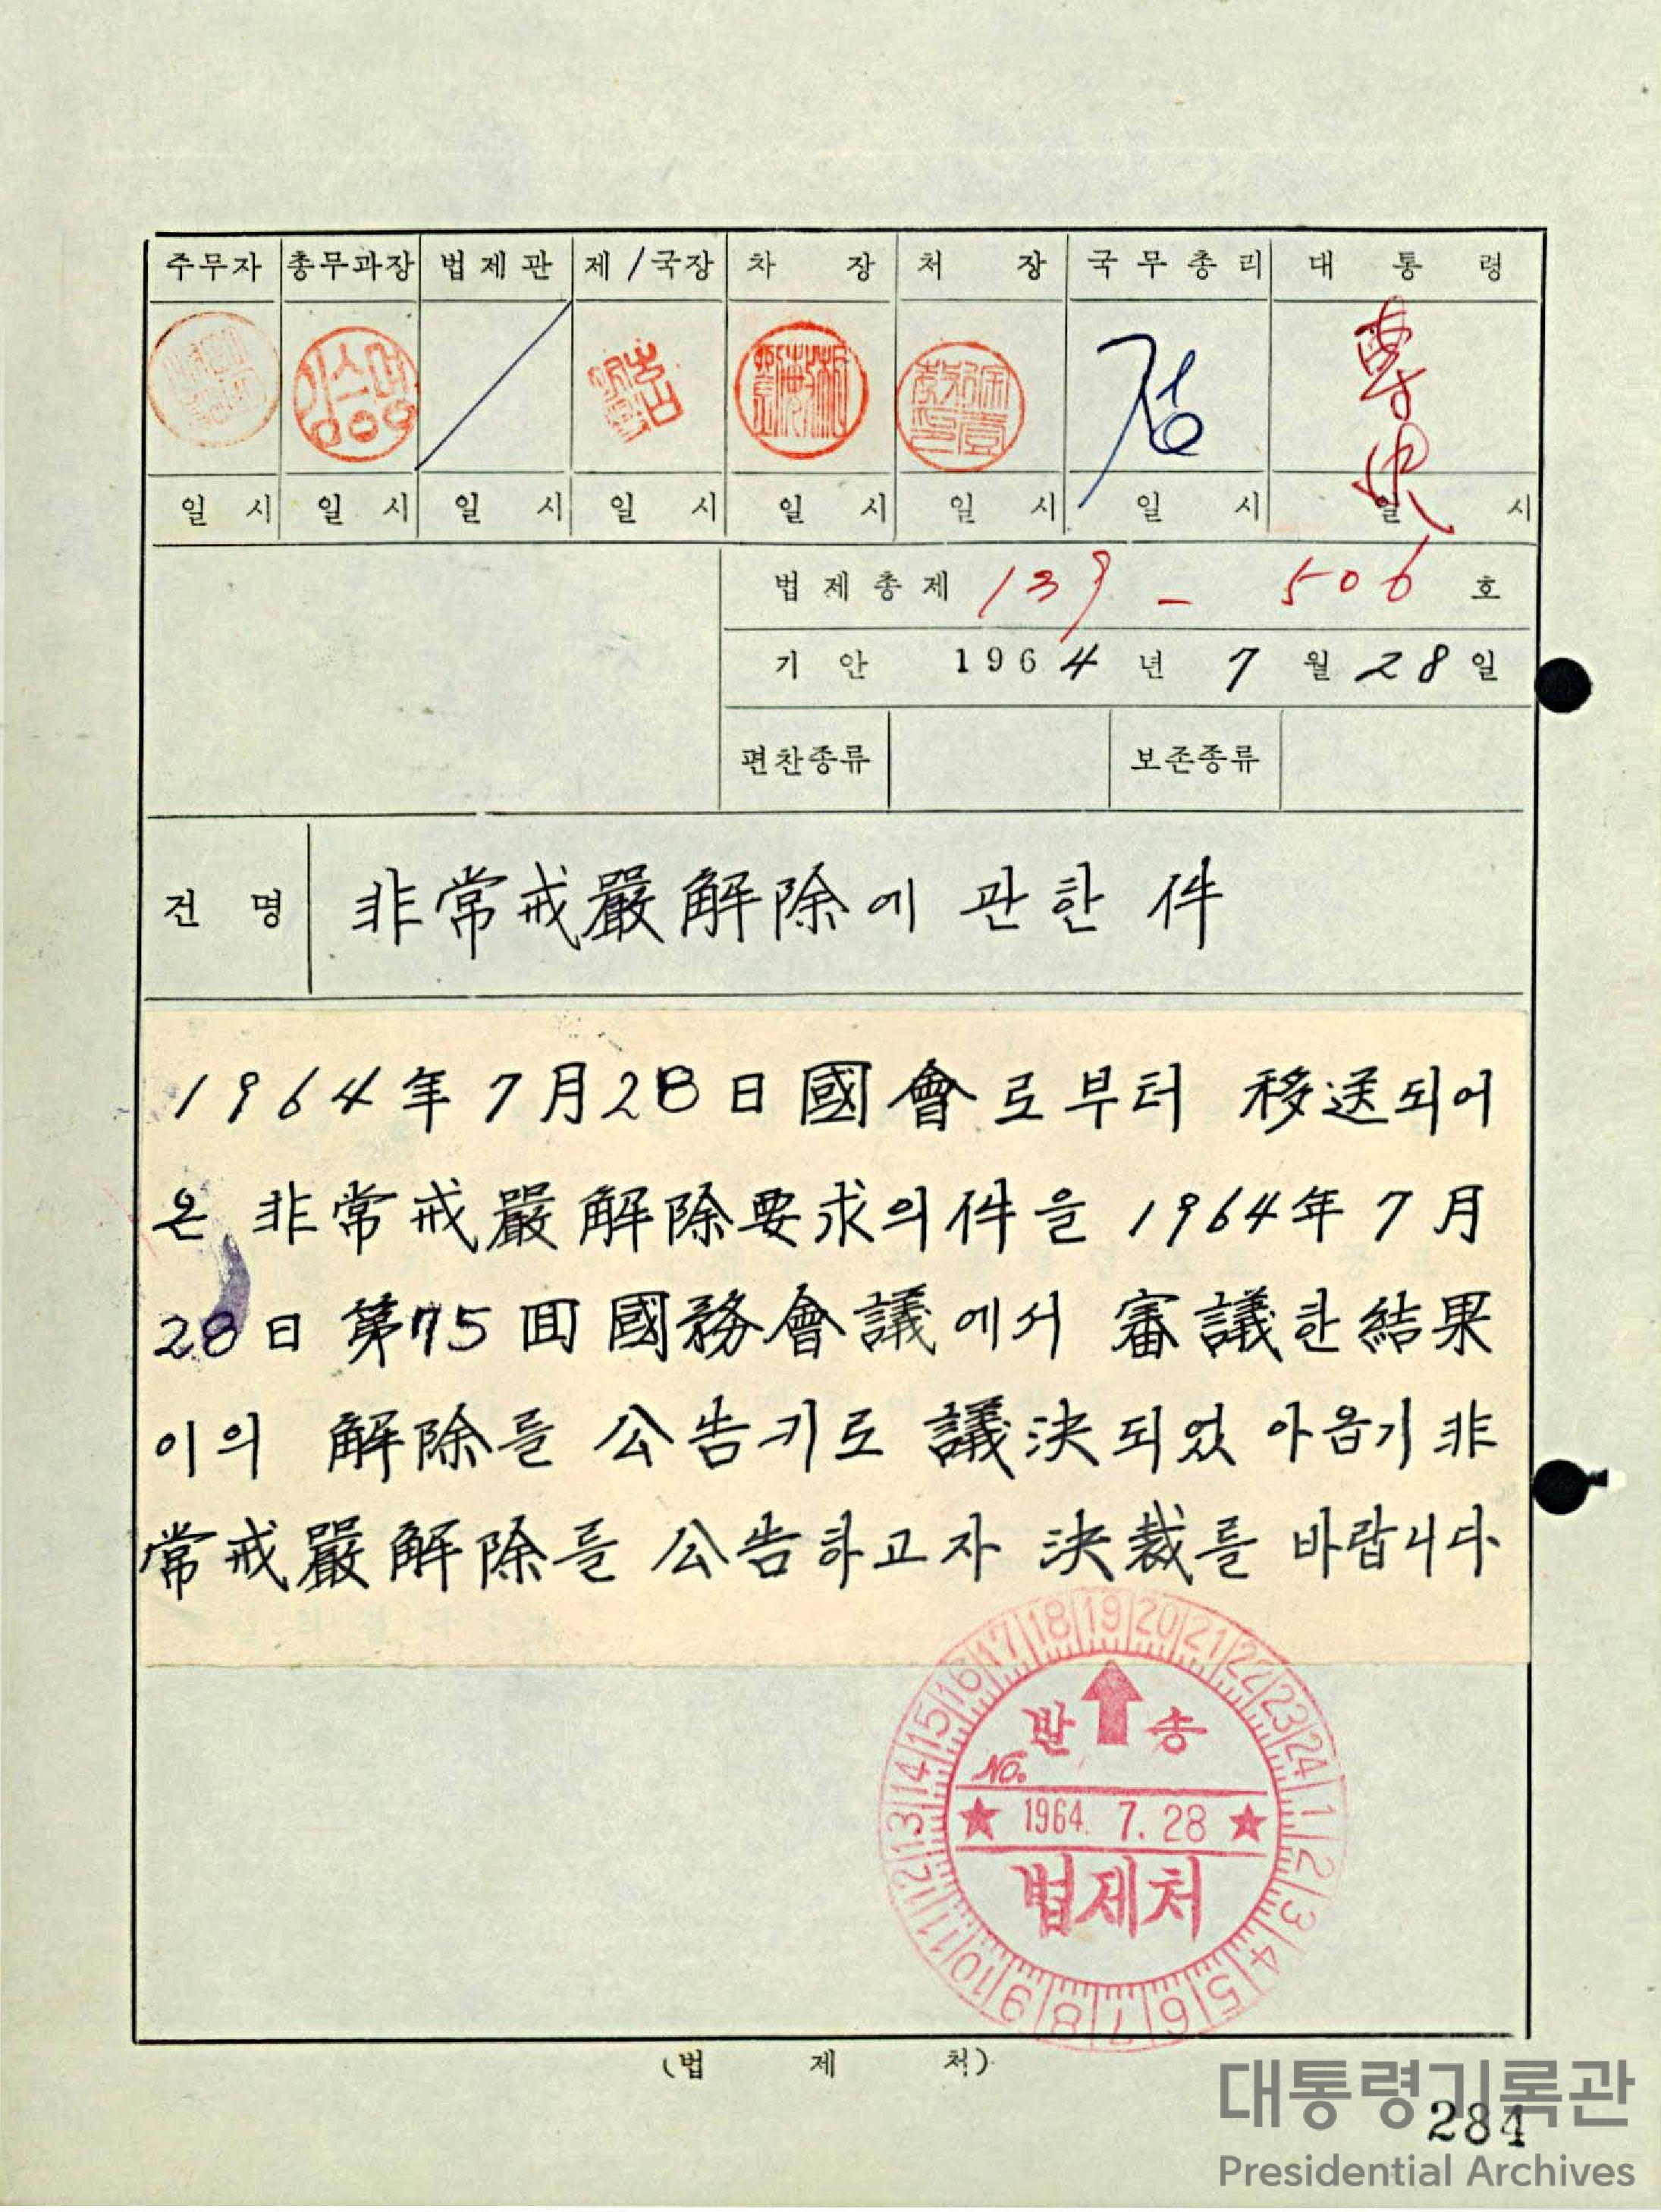 주무자 총무과장 법제관 제/국장 차장 처장 국무총리 대통령
임승명
일 시 일 시 일 시 일 시 일 시 일 시 일 시 일 시
법제총제 139-506 호
기안 1964년 7월 28일
편찬종류 보존종류
건명 非常戒嚴解除에 관한 件
1964年 7月28日 國會로부터 移送되어
온 非常戒嚴解除要求의件을 1964年 7月
28日 第75回 國務會議에서 審議한結果
이의 解除를 公告키로 議決되었아옵기 非
常戒嚴解除를 公告하고자 決裁를 바랍니다
17 18 19 20 21 22 23 24 1 2 3 4 5 6 7 8 9 10 11 12 13 14 15 16
발송
No.
★ 1964. 7. 28 ★
법제처
(법제처)
대통령기록관
284
Presidential Archives